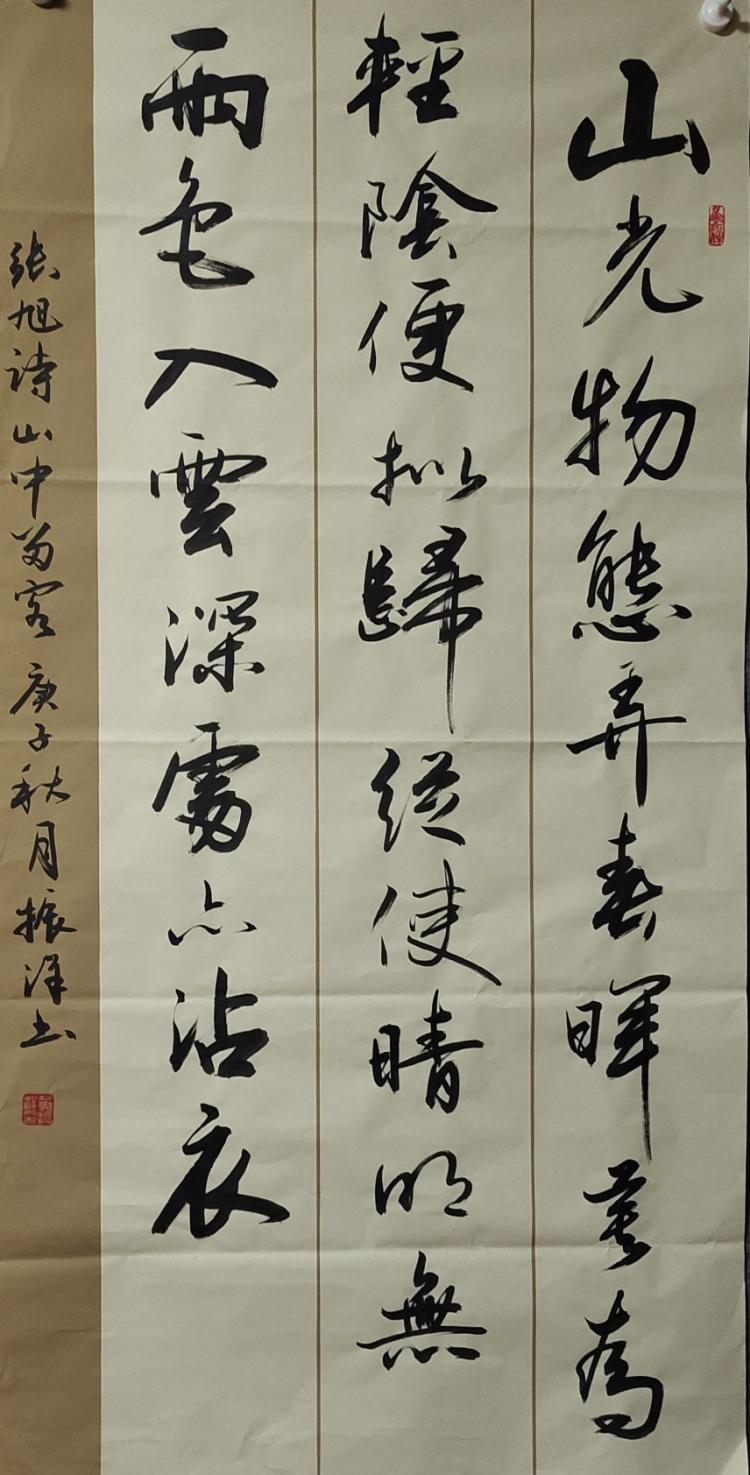 山光物態弄春暉莫為
輕陰便擬歸縱使晴明無
雨色入雲深處亦沾衣
張旭詩山中留客庚子秋月振洋書